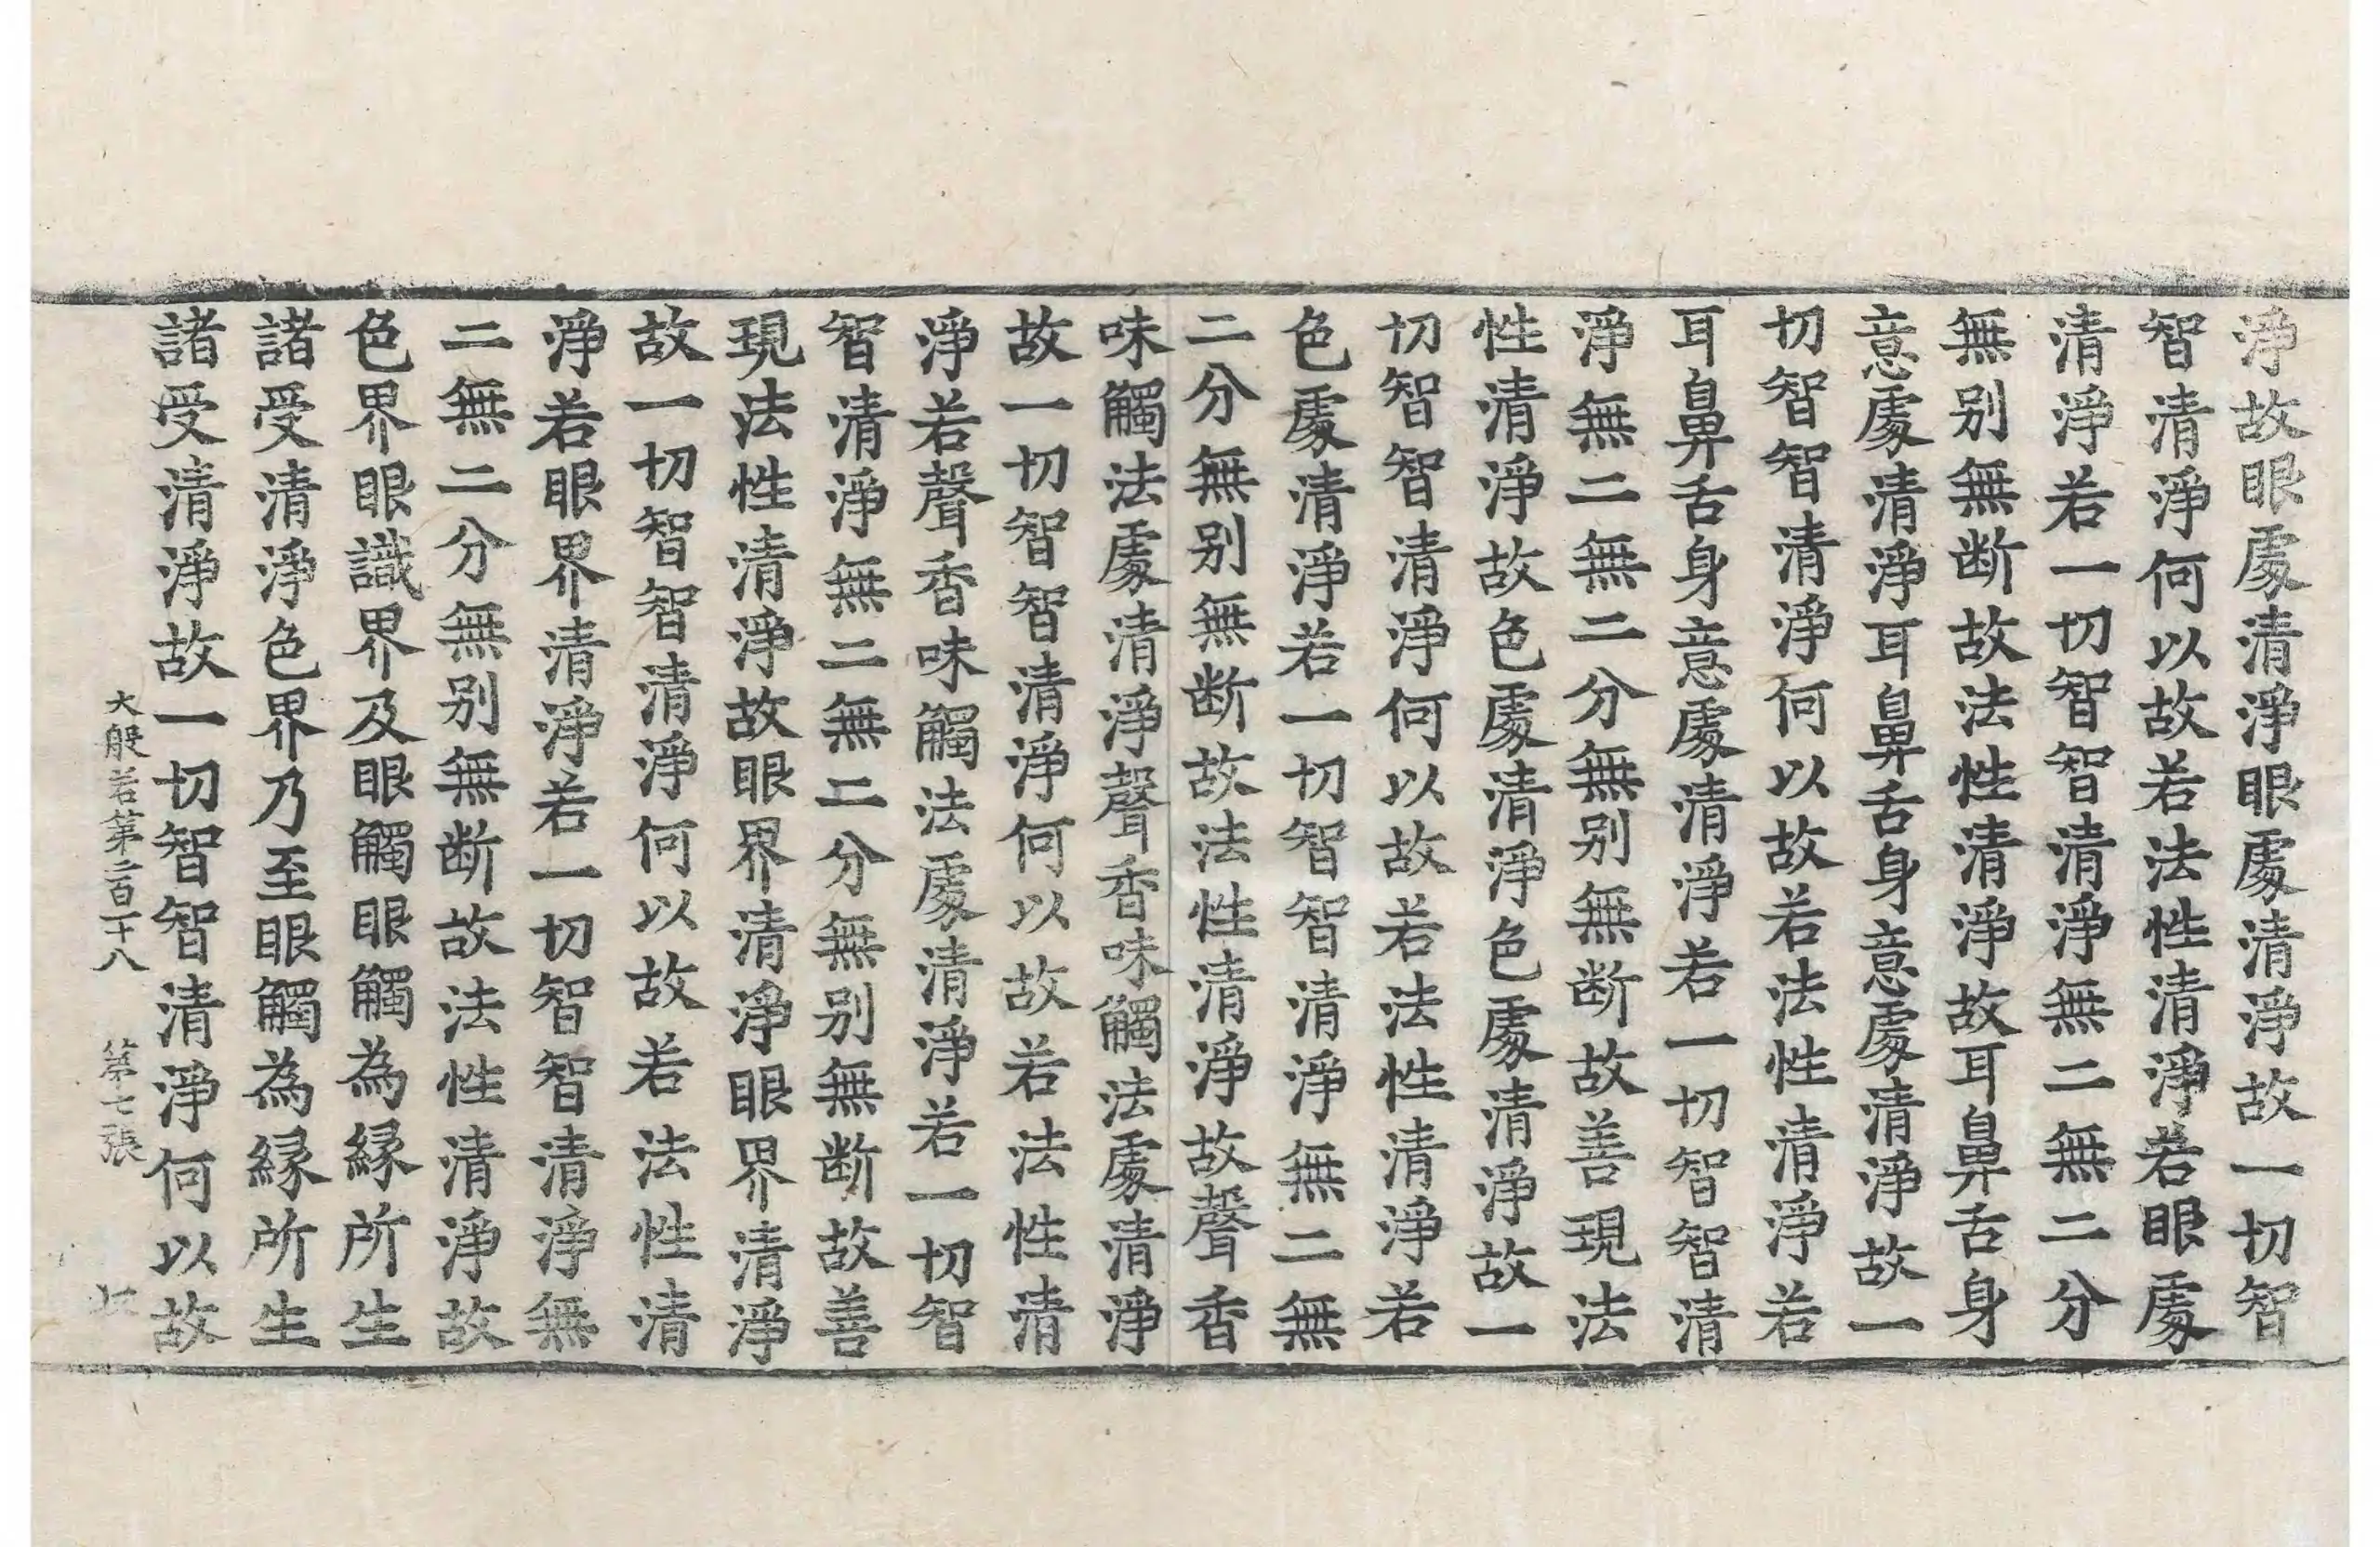 淨故眼處清淨眼處清淨故一切智
智清淨何以故若法性清淨若眼處
清淨若一切智智清淨無二無二分
無别無断故法性清淨故耳鼻舌身
意處清淨耳鼻舌身意處清淨故一
切智智清淨何以故若法性清淨若
耳鼻舌身意處清淨若一切智智清
淨無二無二分無别無断故善現法
性清淨故色處清淨色處清淨故一
切智智清淨何以故若法性清淨若
色處清淨若一切智智清淨無二無
二分無别無断故法性清淨故聲香
味觸法處清淨聲香味觸法處清淨
故一切智智清淨何以故若法性清
淨若聲香味觸法處清淨若一切智
智清淨無二無二分無别無断故善
現法性清淨故眼界清淨眼界清淨
故一切智智清淨何以故若法性清
淨若眼界清淨若一切智智清淨無
二無二分無别無断故法性清淨故
色界眼識界及眼觸眼觸為緣所生
諸受清淨色界乃至眼觸為緣所生
諸受清淨故一切智智清淨何以故
大般若第二百十八 第七張